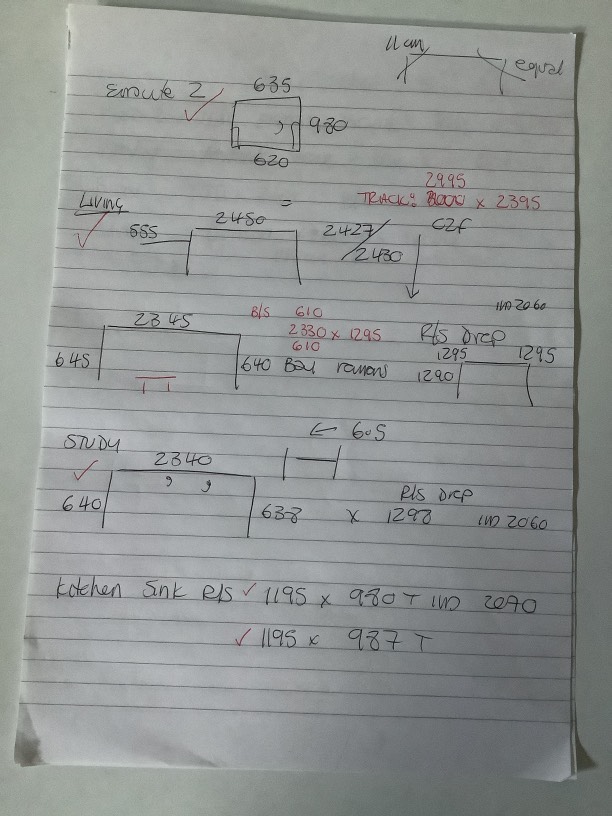 11cm
equal
Ensuite 2 635
980
620
2995
TRACK: x 2395
LIVING
555 2450 2427/2430 C2F
IWD 2060
2345 B/S 610
2330 x 1295
610
R/S Drop
1295 1295
645 640 Bay 1290
← 605
STUDY
2340
R/S Drop
640 638 x 1298 IWD 2060
Kitchen Sink R/S ✓ 1195 x 980 T IWD 2090
✓ 1195 x 987 T